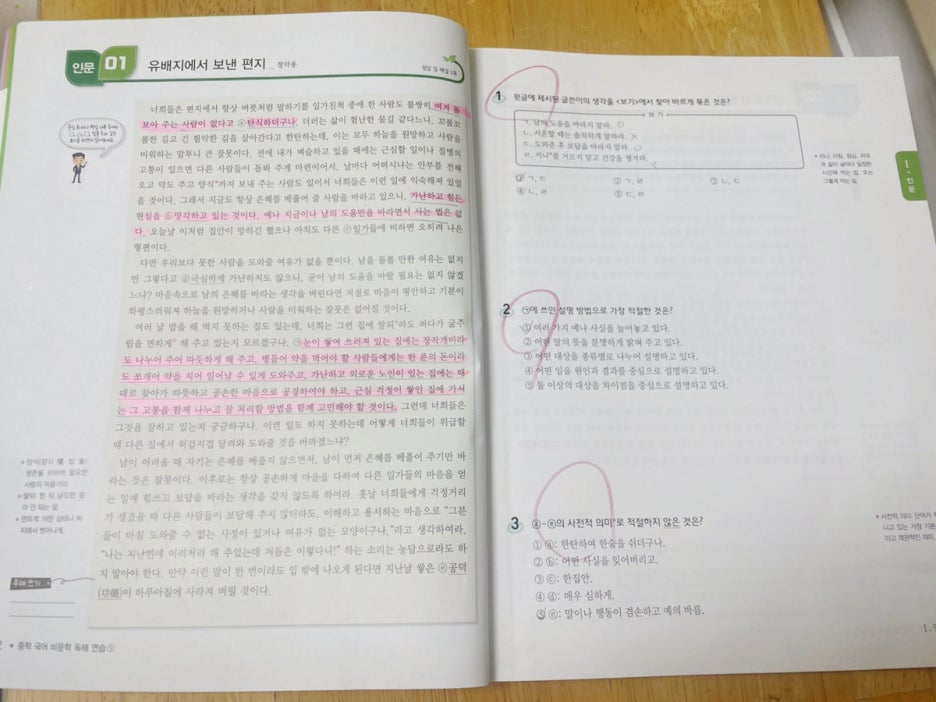 인문 01 유배지에서 보낸 편지 _ 정약용
정답 및 해설 2쪽
너희들은 편지에서 항상 버릇처럼 말하기를 일가친척 중에 한 사람도 불쌍히 여겨 돌
보아 주는 사람이 없다고 ⓐ탄식하더구나. 더러는 삶이 험난한 물길 같다느니, 꼬불꼬
불한 길고 긴 험악한 길을 살아간다고 한탄하는데, 이는 모두 하늘을 원망하고 사람을
미워하는 말투니 큰 잘못이다. 전에 내가 벼슬하고 있을 때에는 근심할 일이나 질병의
고통이 있으면 다른 사람들이 돌봐 주게 마련이어서, 날마다 어떠시냐는 안부를 전해
오고 약도 주고 양식*까지 보내 주는 사람도 있어서 너희들은 이런 일에 익숙해져 있었
을 것이다. 그래서 지금도 항상 은혜를 베풀어 줄 사람을 바라고 있으니, 가난하고 힘든
현실을 ⓑ망각하고 있는 것이다. 예나 지금이나 남의 도움만을 바라면서 사는 법은 없
다. 오늘날 이처럼 집안이 망하긴 했으나 아직도 다른 ⓒ일가들에 비하면 오히려 나은
형편이다.
다만 우리보다 못한 사람을 도와줄 여유가 없을 뿐이다. 남을 돌볼 만한 여유는 없지
만 그렇다고 ⓓ극심하게 가난하지도 않으니, 굳이 남의 도움을 바랄 필요는 없지 않겠
느냐? 마음속으로 남의 은혜를 바라는 생각을 버린다면 저절로 마음이 평안하고 기분이
화평스러워져 하늘을 원망하거나 사람을 미워하는 잘못은 없어질 것이다.
여러 날 밥을 해 먹지 못하는 집도 있는데, 너희는 그런 집에 쌀되*라도 퍼다가 굶주
림을 면하게* 해 주고 있는지 모르겠구나. ㉠눈이 쌓여 쓰러져 있는 집에는 장작개비라
도 나누어 주어 따뜻하게 해 주고, 병들어 약을 먹어야 할 사람들에게는 한 푼의 돈이라
도 쪼개어 약을 지어 일어날 수 있게 도와주고, 가난하고 외로운 노인이 있는 집에는 때
때로 찾아가 따뜻하고 공손한 마음으로 공경하여야 하고, 근심 걱정이 쌓인 집에 가서
는 그 고통을 함께 나누고 잘 처리할 방법을 함께 고민해야 할 것이다. 그런데 너희들은
그것을 잘하고 있는지 궁금하구나. 이런 일도 하지 못하는데 어떻게 너희들이 위급할
때 다른 집에서 허겁지겁 달려와 도와줄 것을 바라겠느냐?
남이 어려울 때 자기는 은혜를 베풀지 않으면서, 남이 먼저 은혜를 베풀어 주기만 바
라는 것은 잘못이다. 이후로는 항상 공손하게 마음을 다하여 다른 일가들의 마음을 얻
는 일에 힘쓰고 보답을 바라는 생각을 갖지 않도록 하여라. 훗날 너희들에게 걱정거리
가 생겼을 때 다른 사람들이 보답해 주지 않더라도, 이해하고 용서하는 마음으로 "그분
들이 마침 도와줄 수 없는 사정이 있거나 여유가 없는 모양이구나."라고 생각하여라.
"나는 지난번에 이리저리 해 주었는데 저들은 이렇다니!" 하는 소리는 농담으로라도 하
지 말아야 한다. 만약 이런 말이 한 번이라도 입 밖에 나오게 된다면 지난날 쌓은 ⓔ공덕
(功德)이 하루아침에 사라져 버릴 것이다.
주제 쓰기
중학 국어 비문학 독해 연습①
1 윗글에 제시된 글쓴이의 생각을 <보기>에서 찾아 바르게 묶은 것은?
보 기
ㄱ. 남에게 도움을 바라지 말라.
ㄴ. 서운할 때는 솔직하게 말하라.
ㄷ. 도와준 후 보답을 바라지 말라.
ㄹ. 끼니*를 거르지 말고 건강을 챙겨라.
① ㄱ, ㄷ ② ㄱ, ㄹ ③ ㄴ, ㄷ
④ ㄴ, ㄹ ⑤ ㄷ, ㄹ
2 ㉠에 쓰인 설명 방법으로 가장 적절한 것은?
① 여러 가지 예나 사실을 늘어놓고 있다.
② 어떤 말의 뜻을 분명하게 밝혀 주고 있다.
③ 어떤 대상을 종류별로 나누어 설명하고 있다.
④ 어떤 일을 원인과 결과를 중심으로 설명하고 있다.
⑤ 둘 이상의 대상을 차이점을 중심으로 설명하고 있다.
3 ⓐ~ⓔ의 사전적 의미*로 적절하지 않은 것은?
① ⓐ: 한탄하여 한숨을 쉬더구나.
② ⓑ: 어떤 사실을 잊어버리고.
③ ⓒ: 한집안.
④ ⓓ: 매우 심하게.
⑤ ⓔ: 말이나 행동이 겸손하고 예의 바름.
Ⅰ·인문